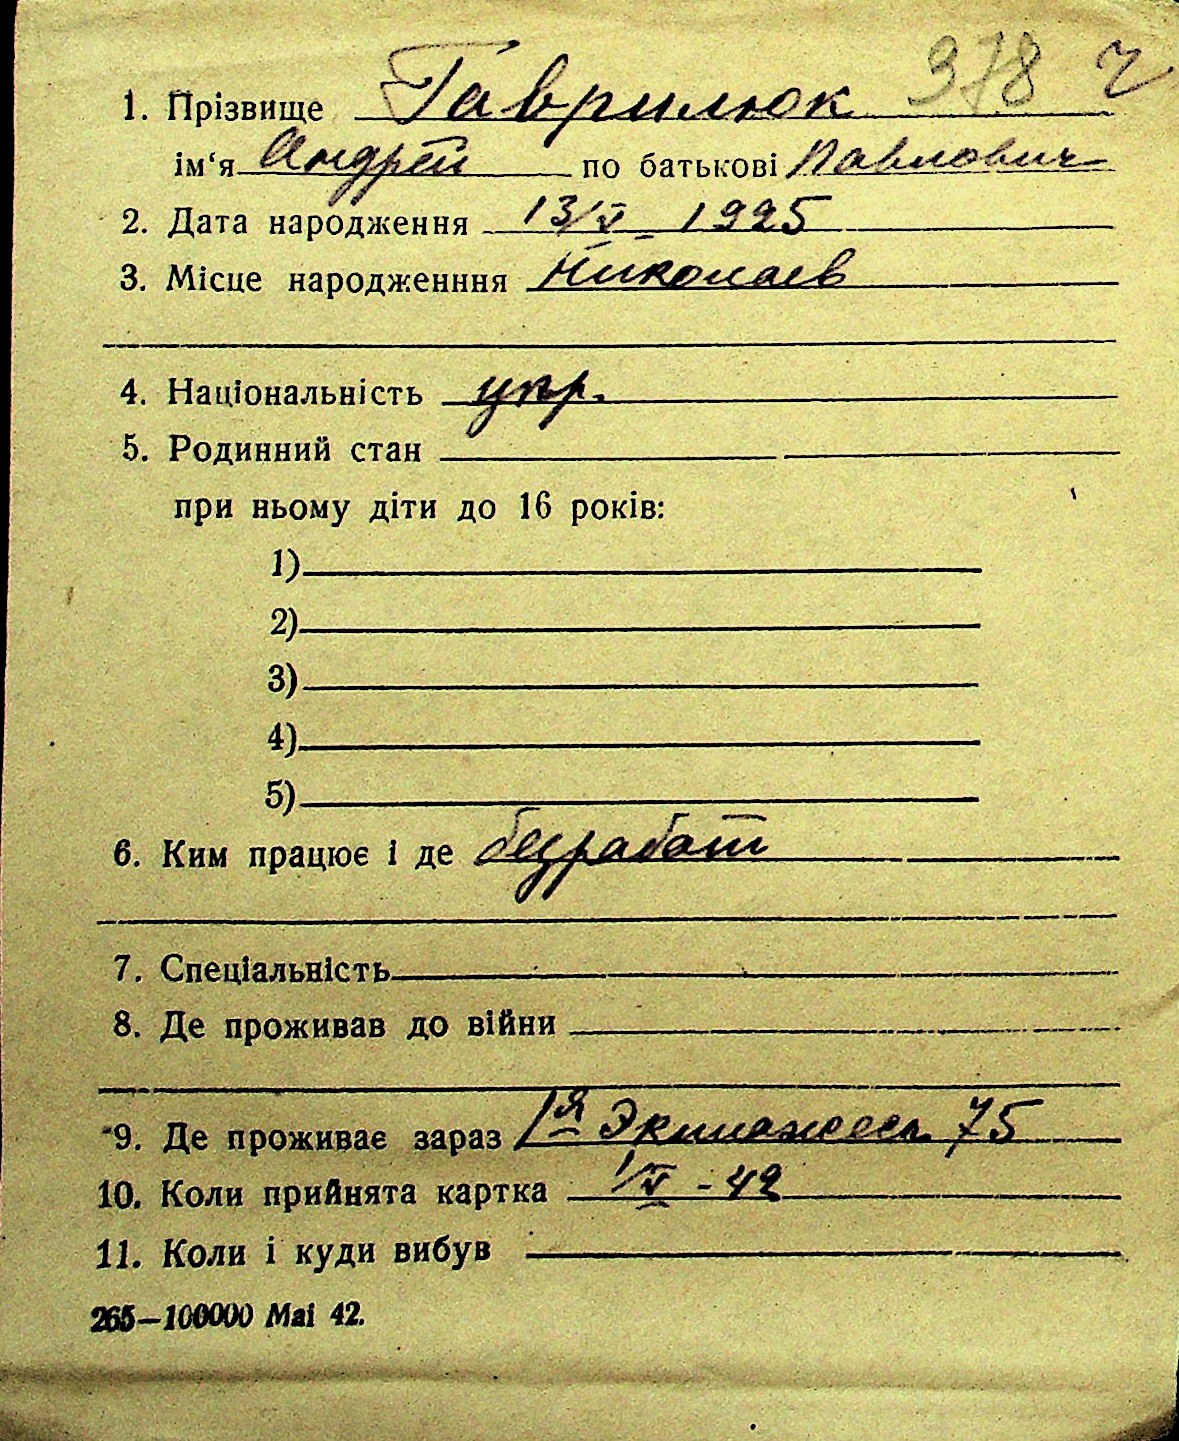 378 ч
1. Прізвище Гаврилюк
ім‘я Андрей по батькові Павлович
2. Дата народження 13/V 1925
3. Місце народженння Николаев
4. Національність укр.
5. Родинний стан
при ньому діти до 16 років:
1)
2)
3)
4)
5)
6. Ким працює і де безработ
7. Спеціальність
8. Де проживав до війни
9. Де проживає зараз 1я Экипажеск. 75
10. Коли прийнята картка 1/V - 42
11. Коли і куди вибув
265—100000 Mai 42.